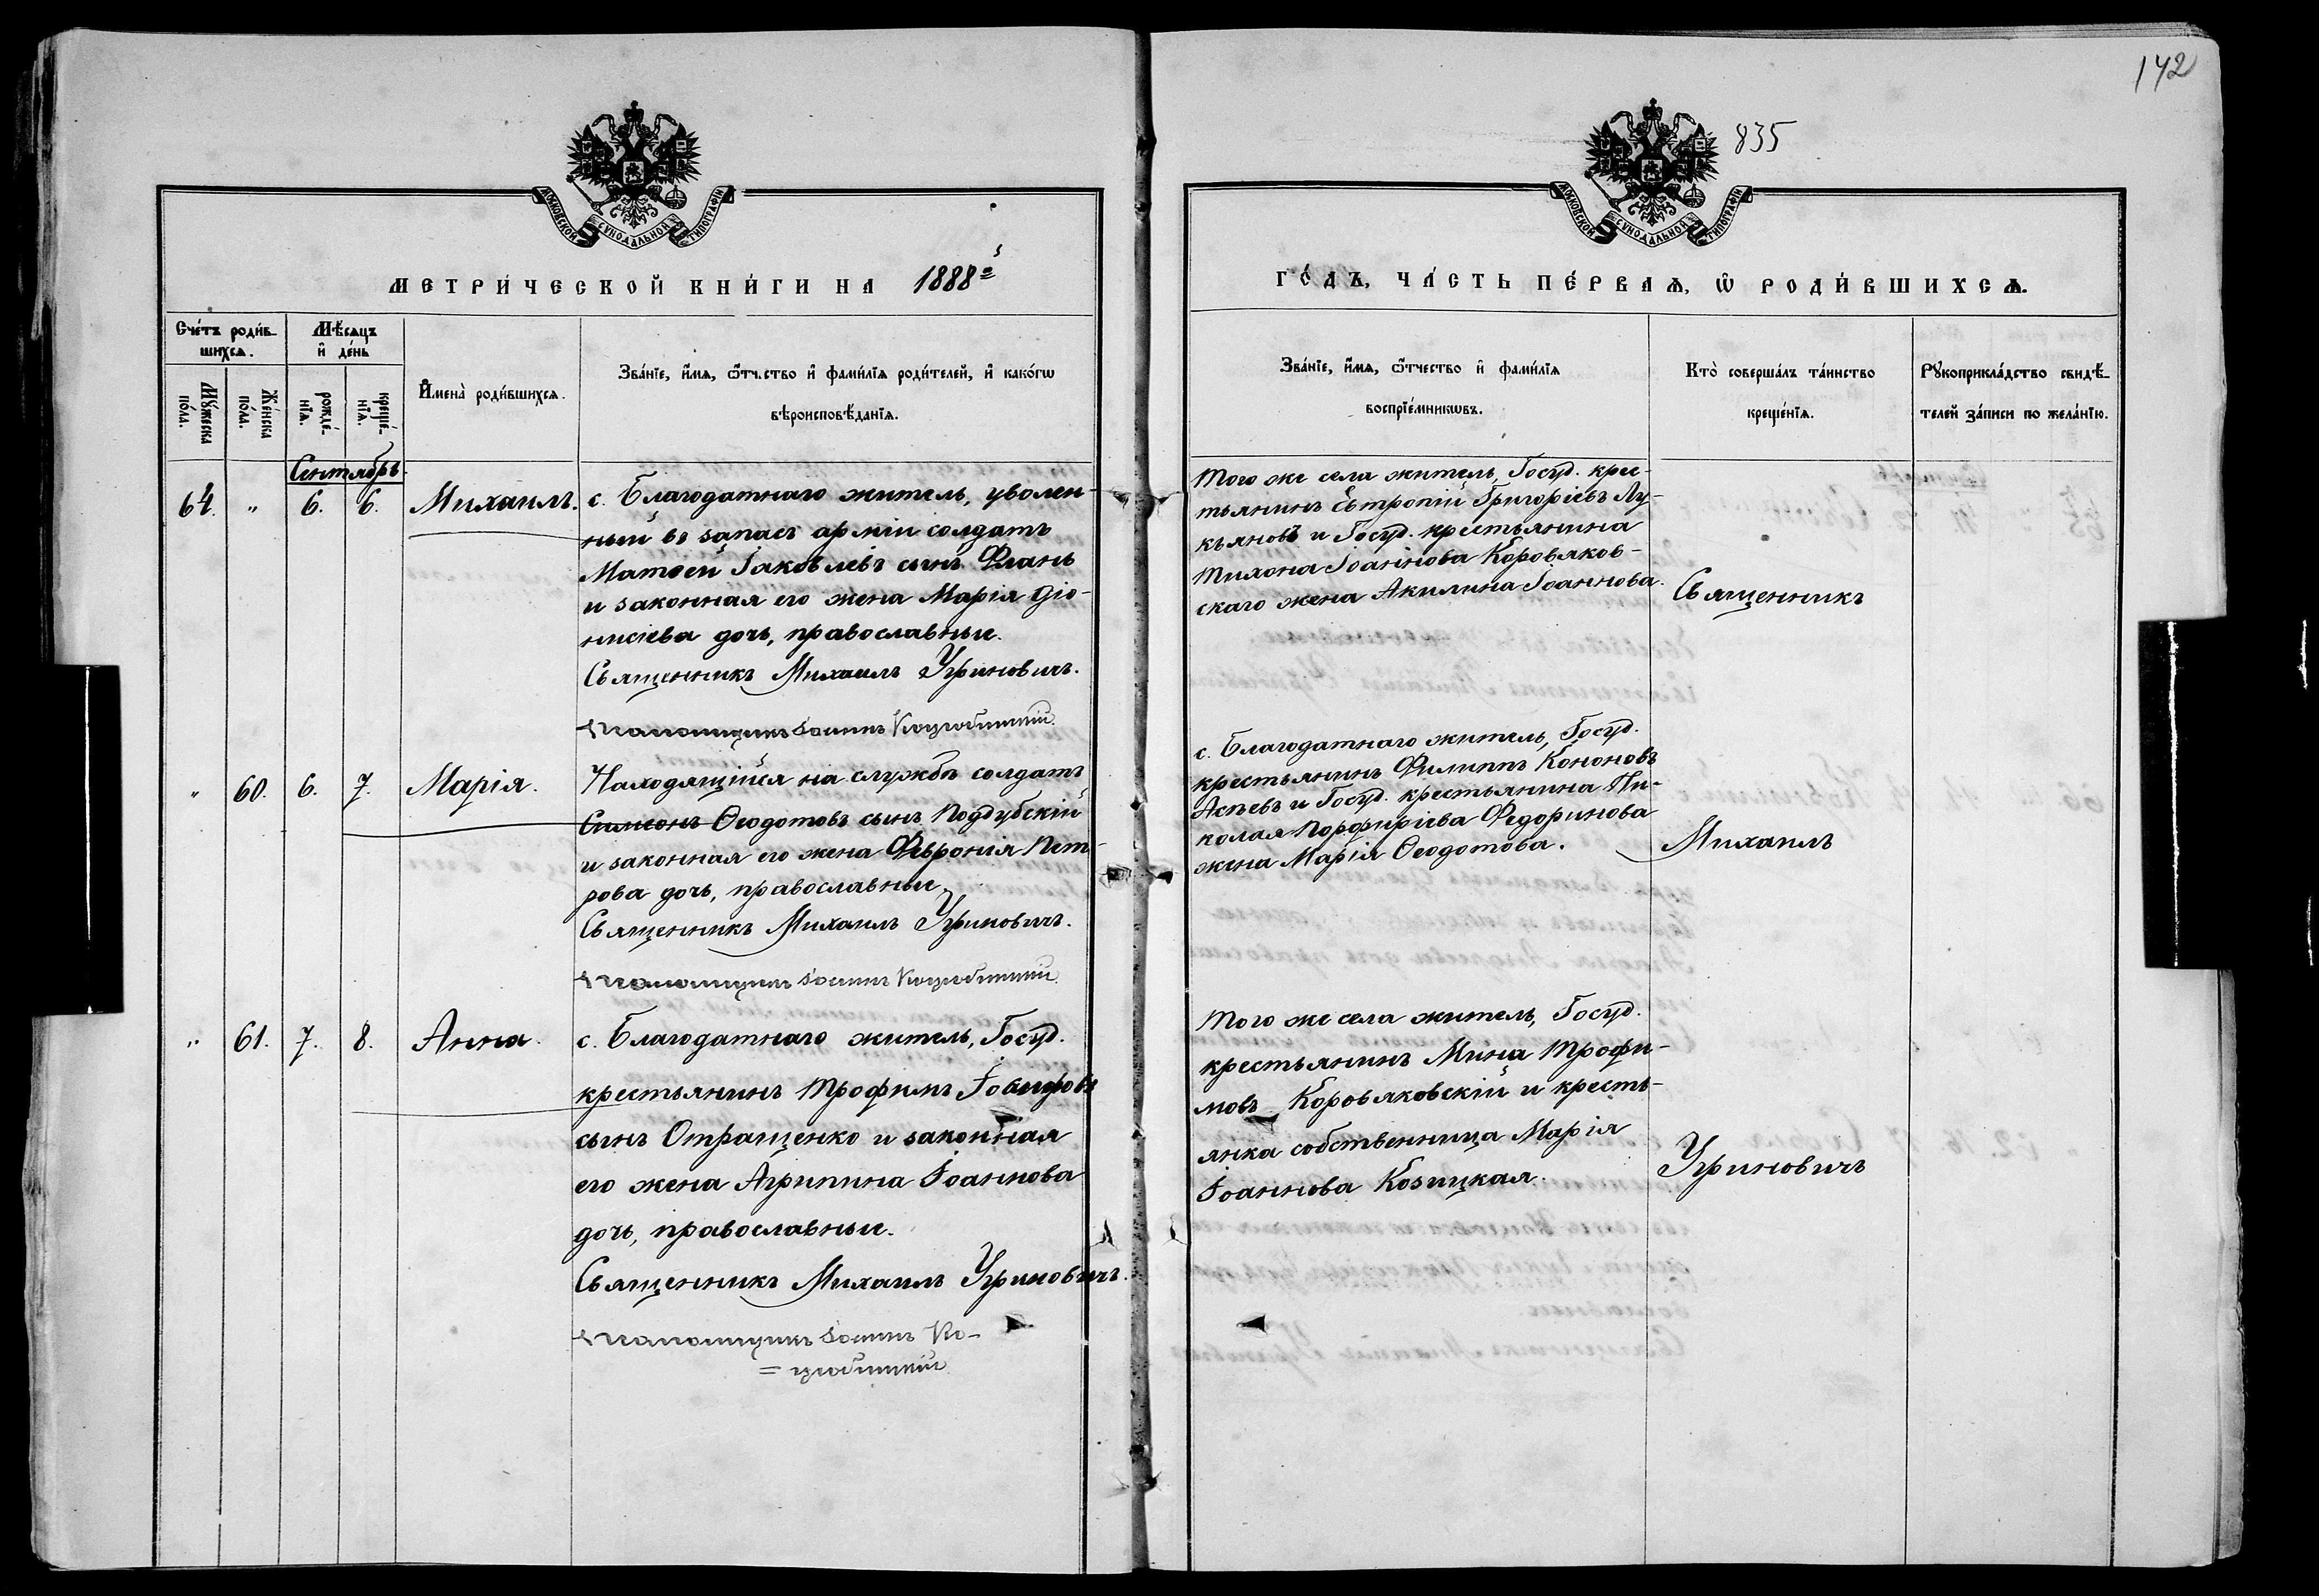 142
835
МОСКОВСКОЙ СѴНОДАЛЬНОЙ ТИПОГРАФІИ
МОСКОВСКОЙ СѴНОДАЛЬНОЙ ТИПОГРАФІИ
МЕТРИ́ЧЕСКОЙ КНИ́ГИ НА 1888й
ГО́ДЪ, ЧА́СТЬ ПЕ́РВАѦ, Ѡ҆ РОДИ́ВШИХСѦ.
Сче́тъ роди́в-
шихсѧ.
Мꙋ́жеска по́ла.
Же́нска по́ла.
Мѣ́сѧцъ
и҆ де́нь
рожде́-
нїѧ.
креще́-
нїѧ.
И҆мена̀ роди́вшихсѧ.
Зва́нїе, и҆́мѧ, ѻ҆́тчество и҆ фами́лїѧ роди́телей, и҆ како́гѡ
вѣроисповѣ́данїѧ.
Зва́нїе, и҆́мѧ, ѻ҆́тчество и҆ фами́лїѧ
воспрїе́мникѡвъ.
Кто̀ соверша́лъ та́инство
креще́нїѧ.
Рꙋкоприкла́дство свидѣ́-
телей за́писи по жела́нїю.
Сентябрь.
64. " 6. 6. Михаилъ.
с. Благодатнаго житель, уволен-
ный въ запасъ арміи солдатъ
Матѳей Іаковлевъ сынъ
и законная его жена Марія Діо-
нисіева дочь, православные.
Священникъ Михаилъ Угриновичъ.
Псаломщикъ Іоаннъ
Того же села житель, Госуд. крес-
тьянинъ Евтропій Григоріевъ Лу-
кьяновъ и Госуд. крестьянина
Тихона Іоаннова Коровяков-
скаго жена Акилина Іоаннова.
Священникъ
" 60. 6. 7. Марія.
Находящійся на службѣ солдатъ
Симеонъ Ѳеодотовъ сынъ Поддубскій
и законная его жена Февронія Пет-
рова дочь, православные.
Священникъ Михаилъ Угриновичъ.
Псаломщикъ Іоаннъ
с. Благодатнаго житель, Госуд.
крестьянинъ Филиппъ Кононовъ
и Госуд. крестьянина Ни-
колая Порфиріева Федоринова
жена Марія Ѳеодотова.
Михаилъ
" 61. 7. 8. Анна.
с. Благодатнаго житель, Госуд.
крестьянинъ Трофимъ
сынъ Отращенко и законная
его жена Агрипина Іоаннова
дочь, православные.
Священникъ Михаилъ Угриновичъ.
Псаломщикъ Іоаннъ
Того же села житель, Госуд.
крестьянинъ Мина Трофи-
мовъ Коровяковскій и кресть-
янка собственница Марія
Іоаннова Козицкая.
Угриновичъ